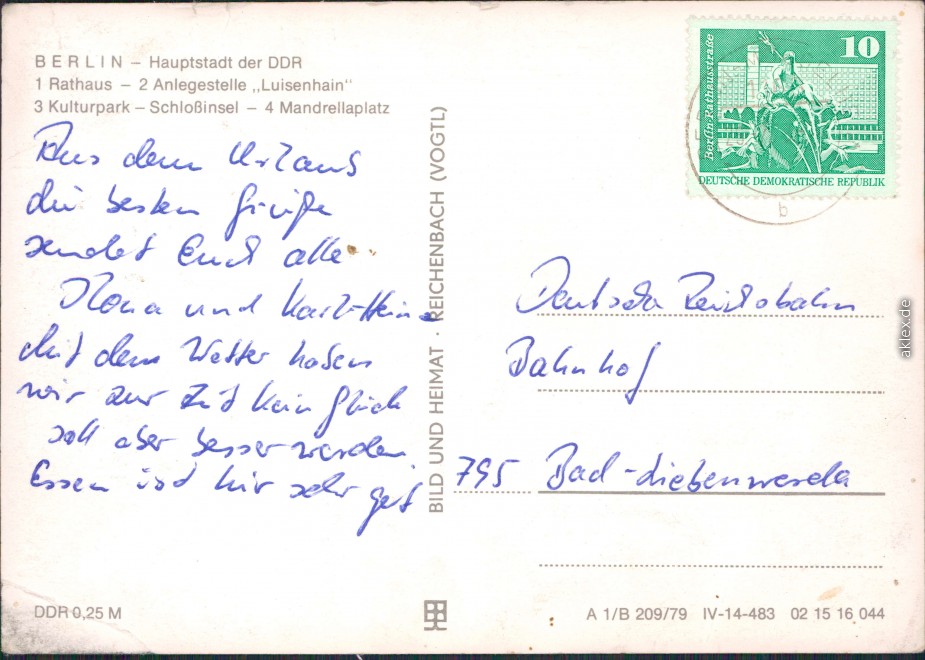 BERLIN – Hauptstadt der DDR
1 Rathaus – 2 Anlegestelle „Luisenhain"
3 Kulturpark – Schloßinsel – 4 Mandrellaplatz
Aus dem Urlaub
die besten Grüße
sendet Euch alle
Mona und Karl-Heinz
Mit dem Wetter haben
wir zur Zeit kein Glück
soll aber besser werden
Essen ist hier sehr gut
BILD UND HEIMAT · REICHENBACH (VOGTL)
10
Berlin-Rathausstraße
DEUTSCHE DEMOKRATISCHE REPUBLIK
b
Deutsche Reichsbahn
Bahnhof
795 Bad-Liebenwerda
DDR 0,25 M
A 1/B 209/79 IV-14-483 02 15 16 044
aklex.de